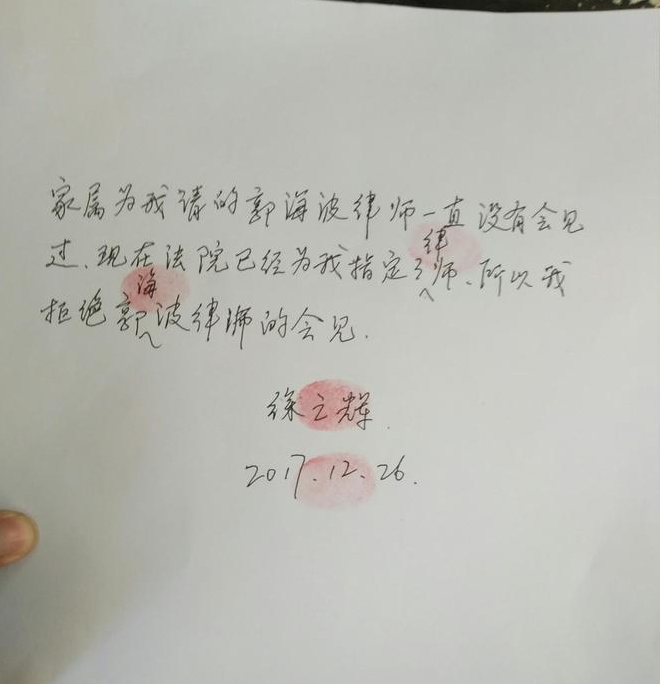 家属为我请的郭海波律师一直没有会见
过、现在法院已经为我指定了律师、所以我
拒绝郭海波律师的会见.
徐立辉.
2017.12.26.